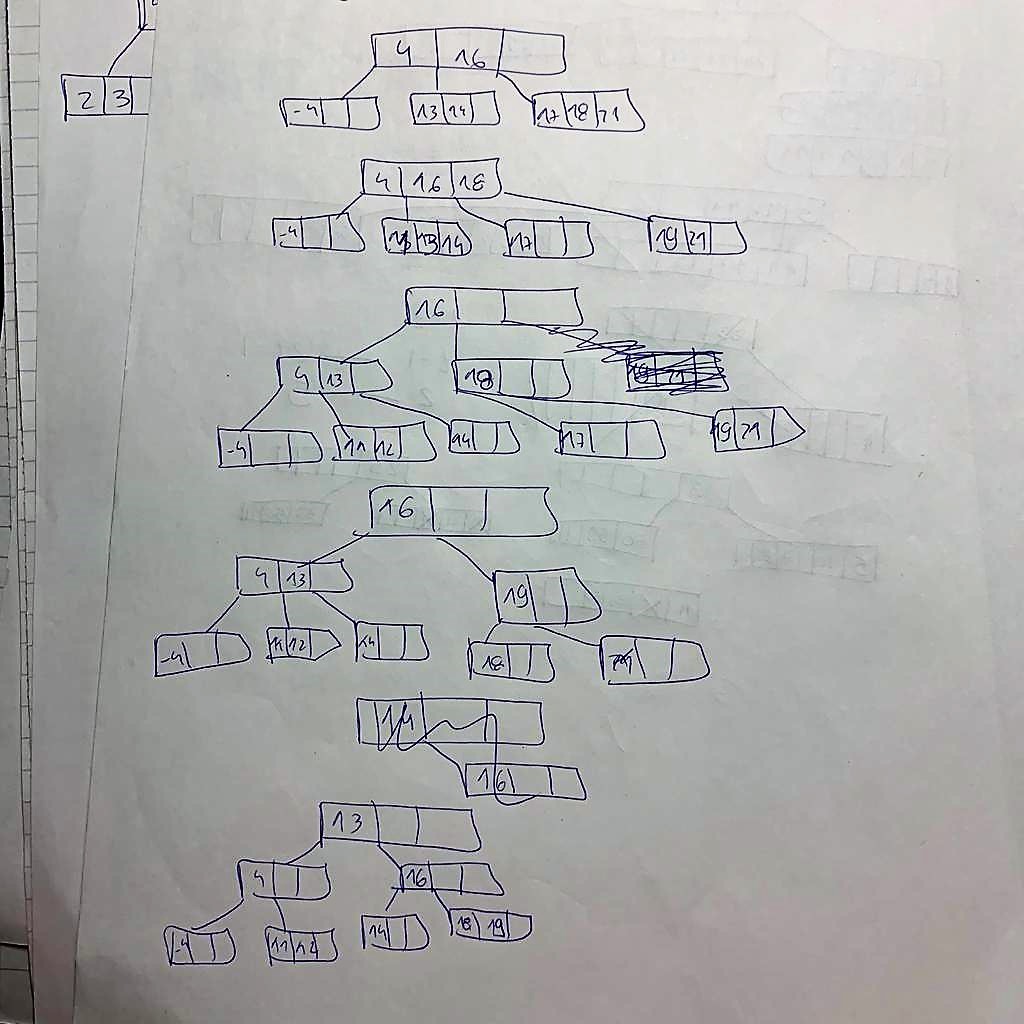 2 3
4 16
-4 13 14 17 18 21
4 16 18
-4 13 14 17 19 21
16
4 13 18
-4 11 12 14 17 19 21
16
4 13 19
-4 11 12 14 18 21
14
16
13
4 16
-4 11 12 14 18 19